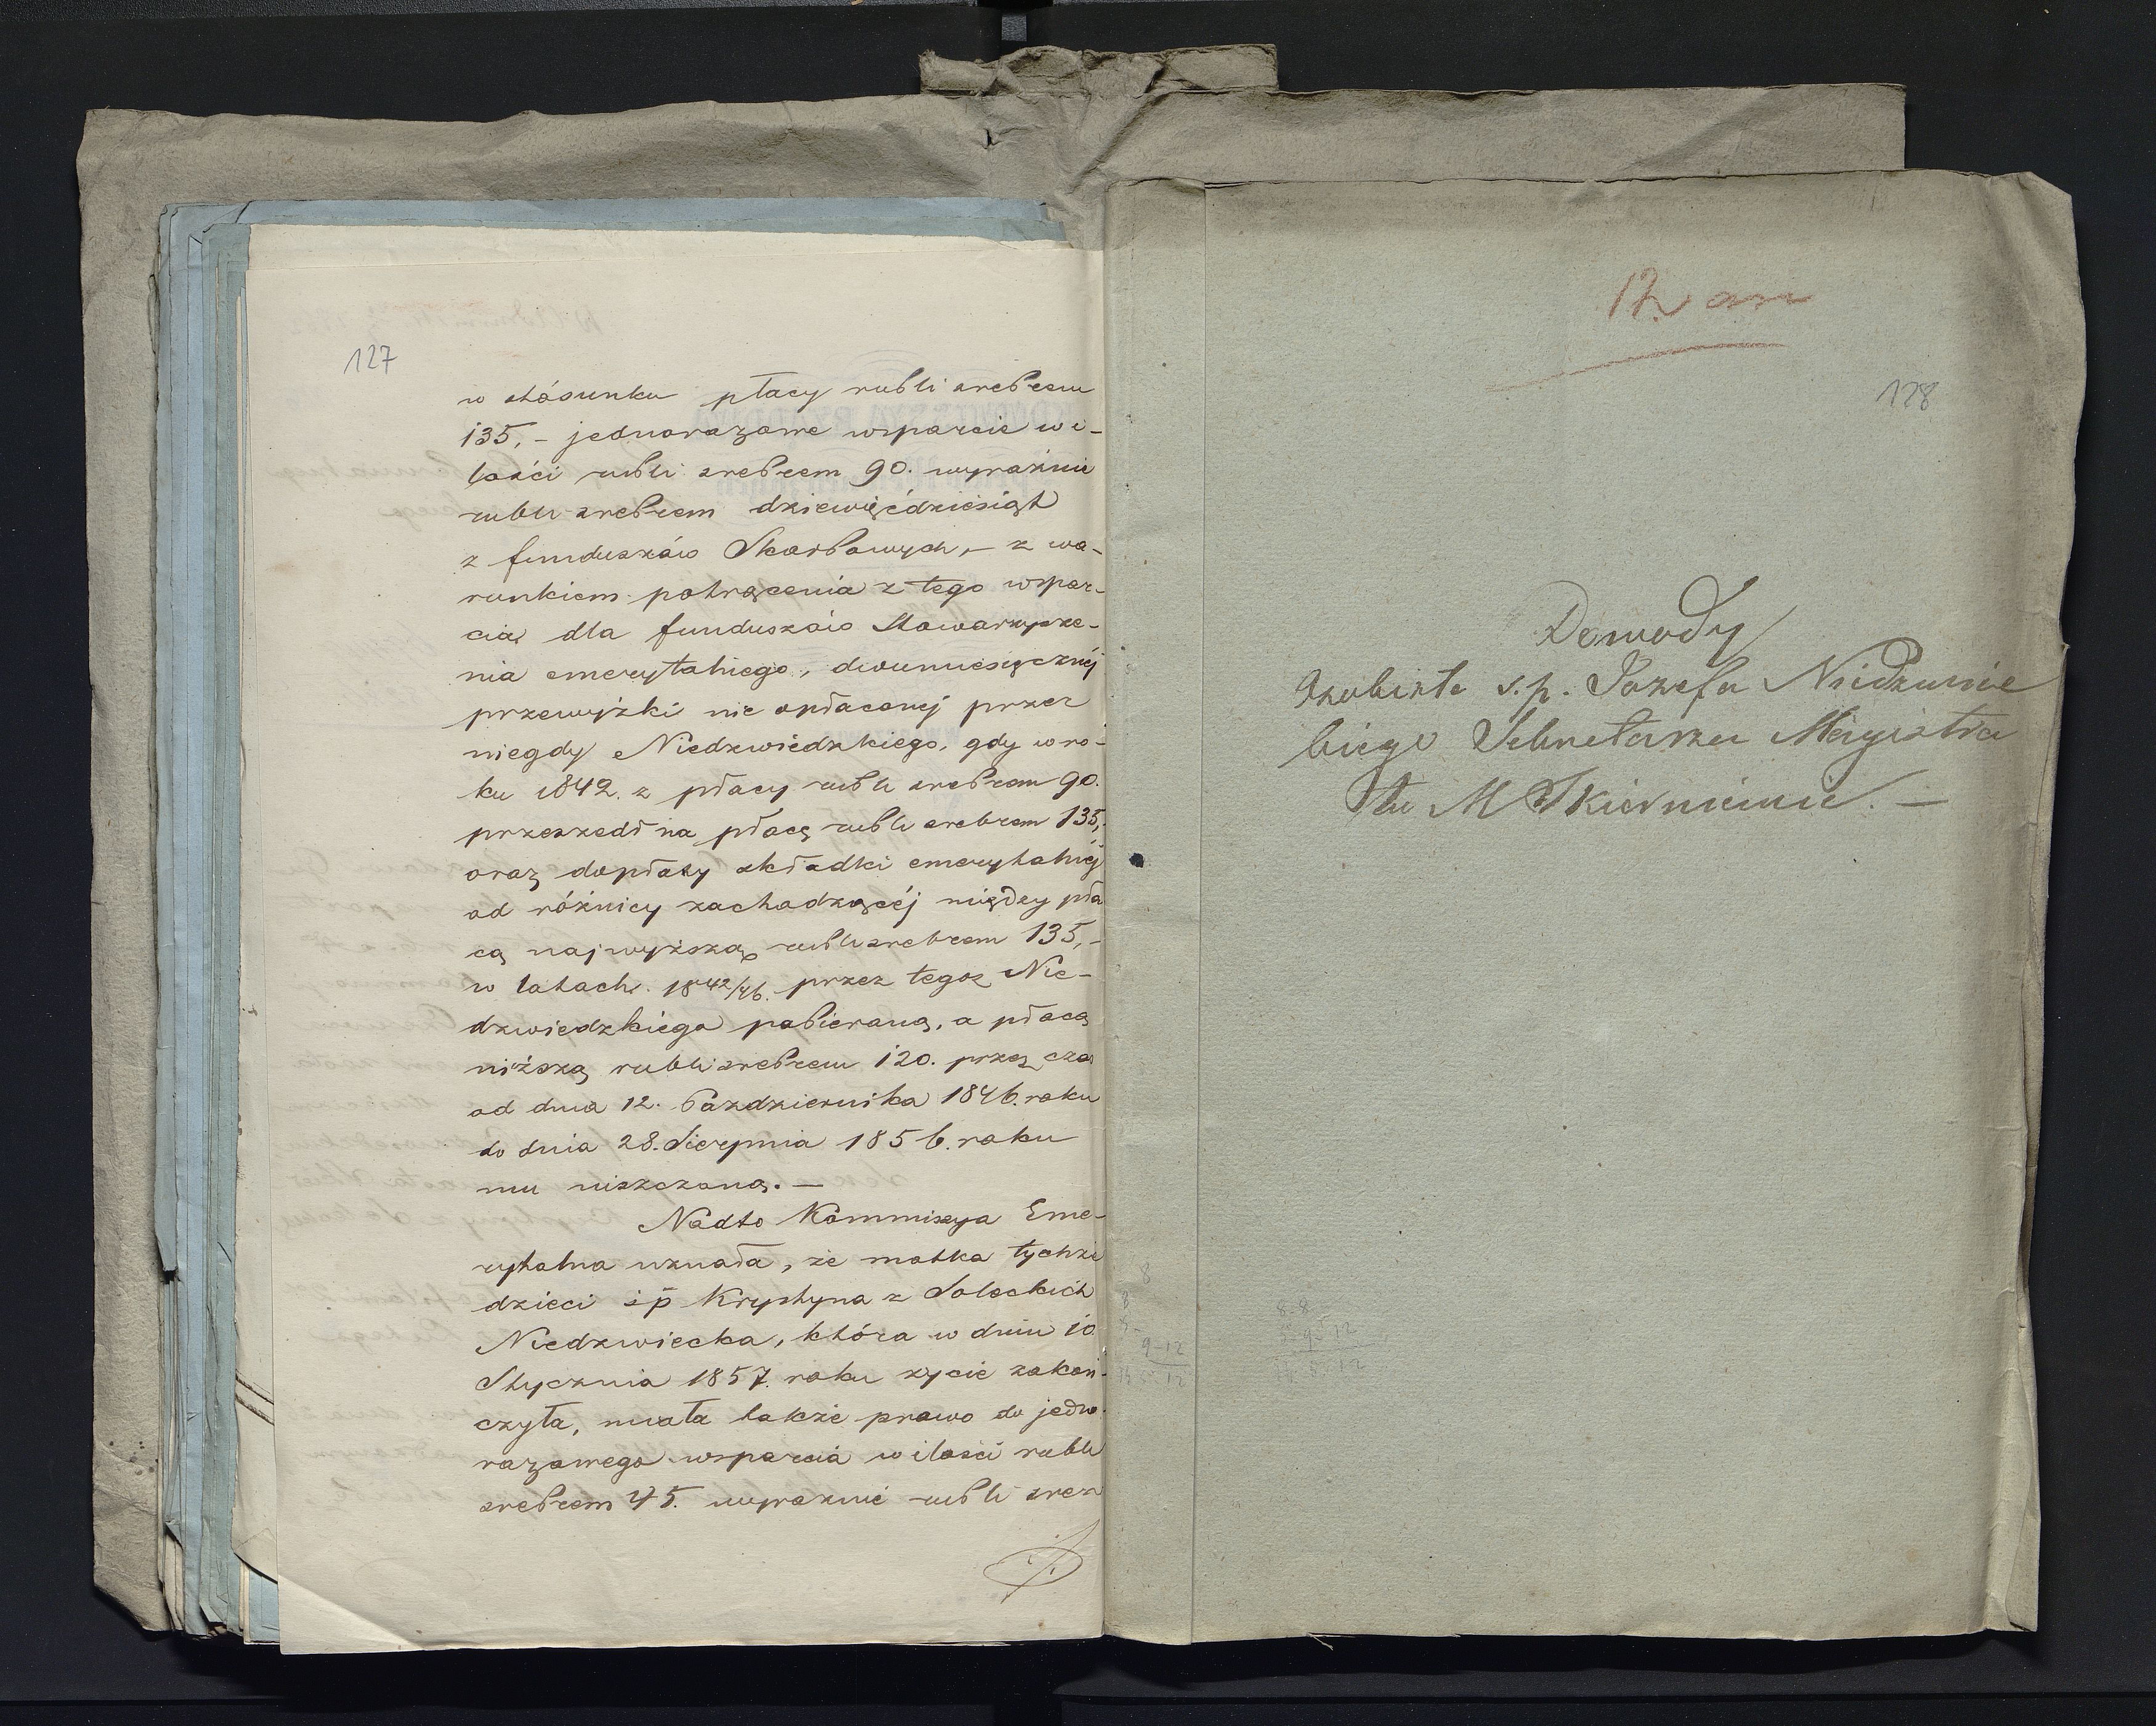 127
w stósunku płacy rubli srebrem
135,- jednorazowe wsparcie w i-
lości rubli srebrem 90. wyraźnie
rubli srebrem dziewięćdziesiąt
z funduszów Skarbowych, - z wa-
runkiem potrącenia z tego wspar-
cia, dla funduszów Stowarzysze-
nia emerytalnego, dwumiesięcznéj
przewyżki nie opłaconéj przez
niegdy Niedzwiedzkiego, gdy w ro-
ku 1842. z płacy rubli srebrem 90.
przeszedł na płacę rubli srebrem 135,
oraz dopłaty składki emerytalnéj
od różnicy zachodzącéj między pła
cą najwyższą rubli srebrem 135,-
w latach 1842/46. przez tegoż Nie-
dzwiedzkiego pobieraną, a płacą
niższą rubli srebrem 120. przez czas
od dnia 12. Października 1846. roku
do dnia 28. Sierpnia 1856. roku
mu uiszczoną. -
Nadto Kommissya Eme-
rytalna uznała, że matka tychże
dzieci śp Krystyna z Soleckich
Niedzwiecka, która w dniu 10
Stycznia 1857. roku życie zakoń-
czyła, miała także prawo do jedno-
razowego wsparcia w ilości rubli
srebrem 45. wyraźnie rubli sre-
128
Dowody
Osobiste s.p. Józefa Niedzwie
ckiego Sekretarza Magistra
tu M Skierniewic. -
8-8
9-12
9-12